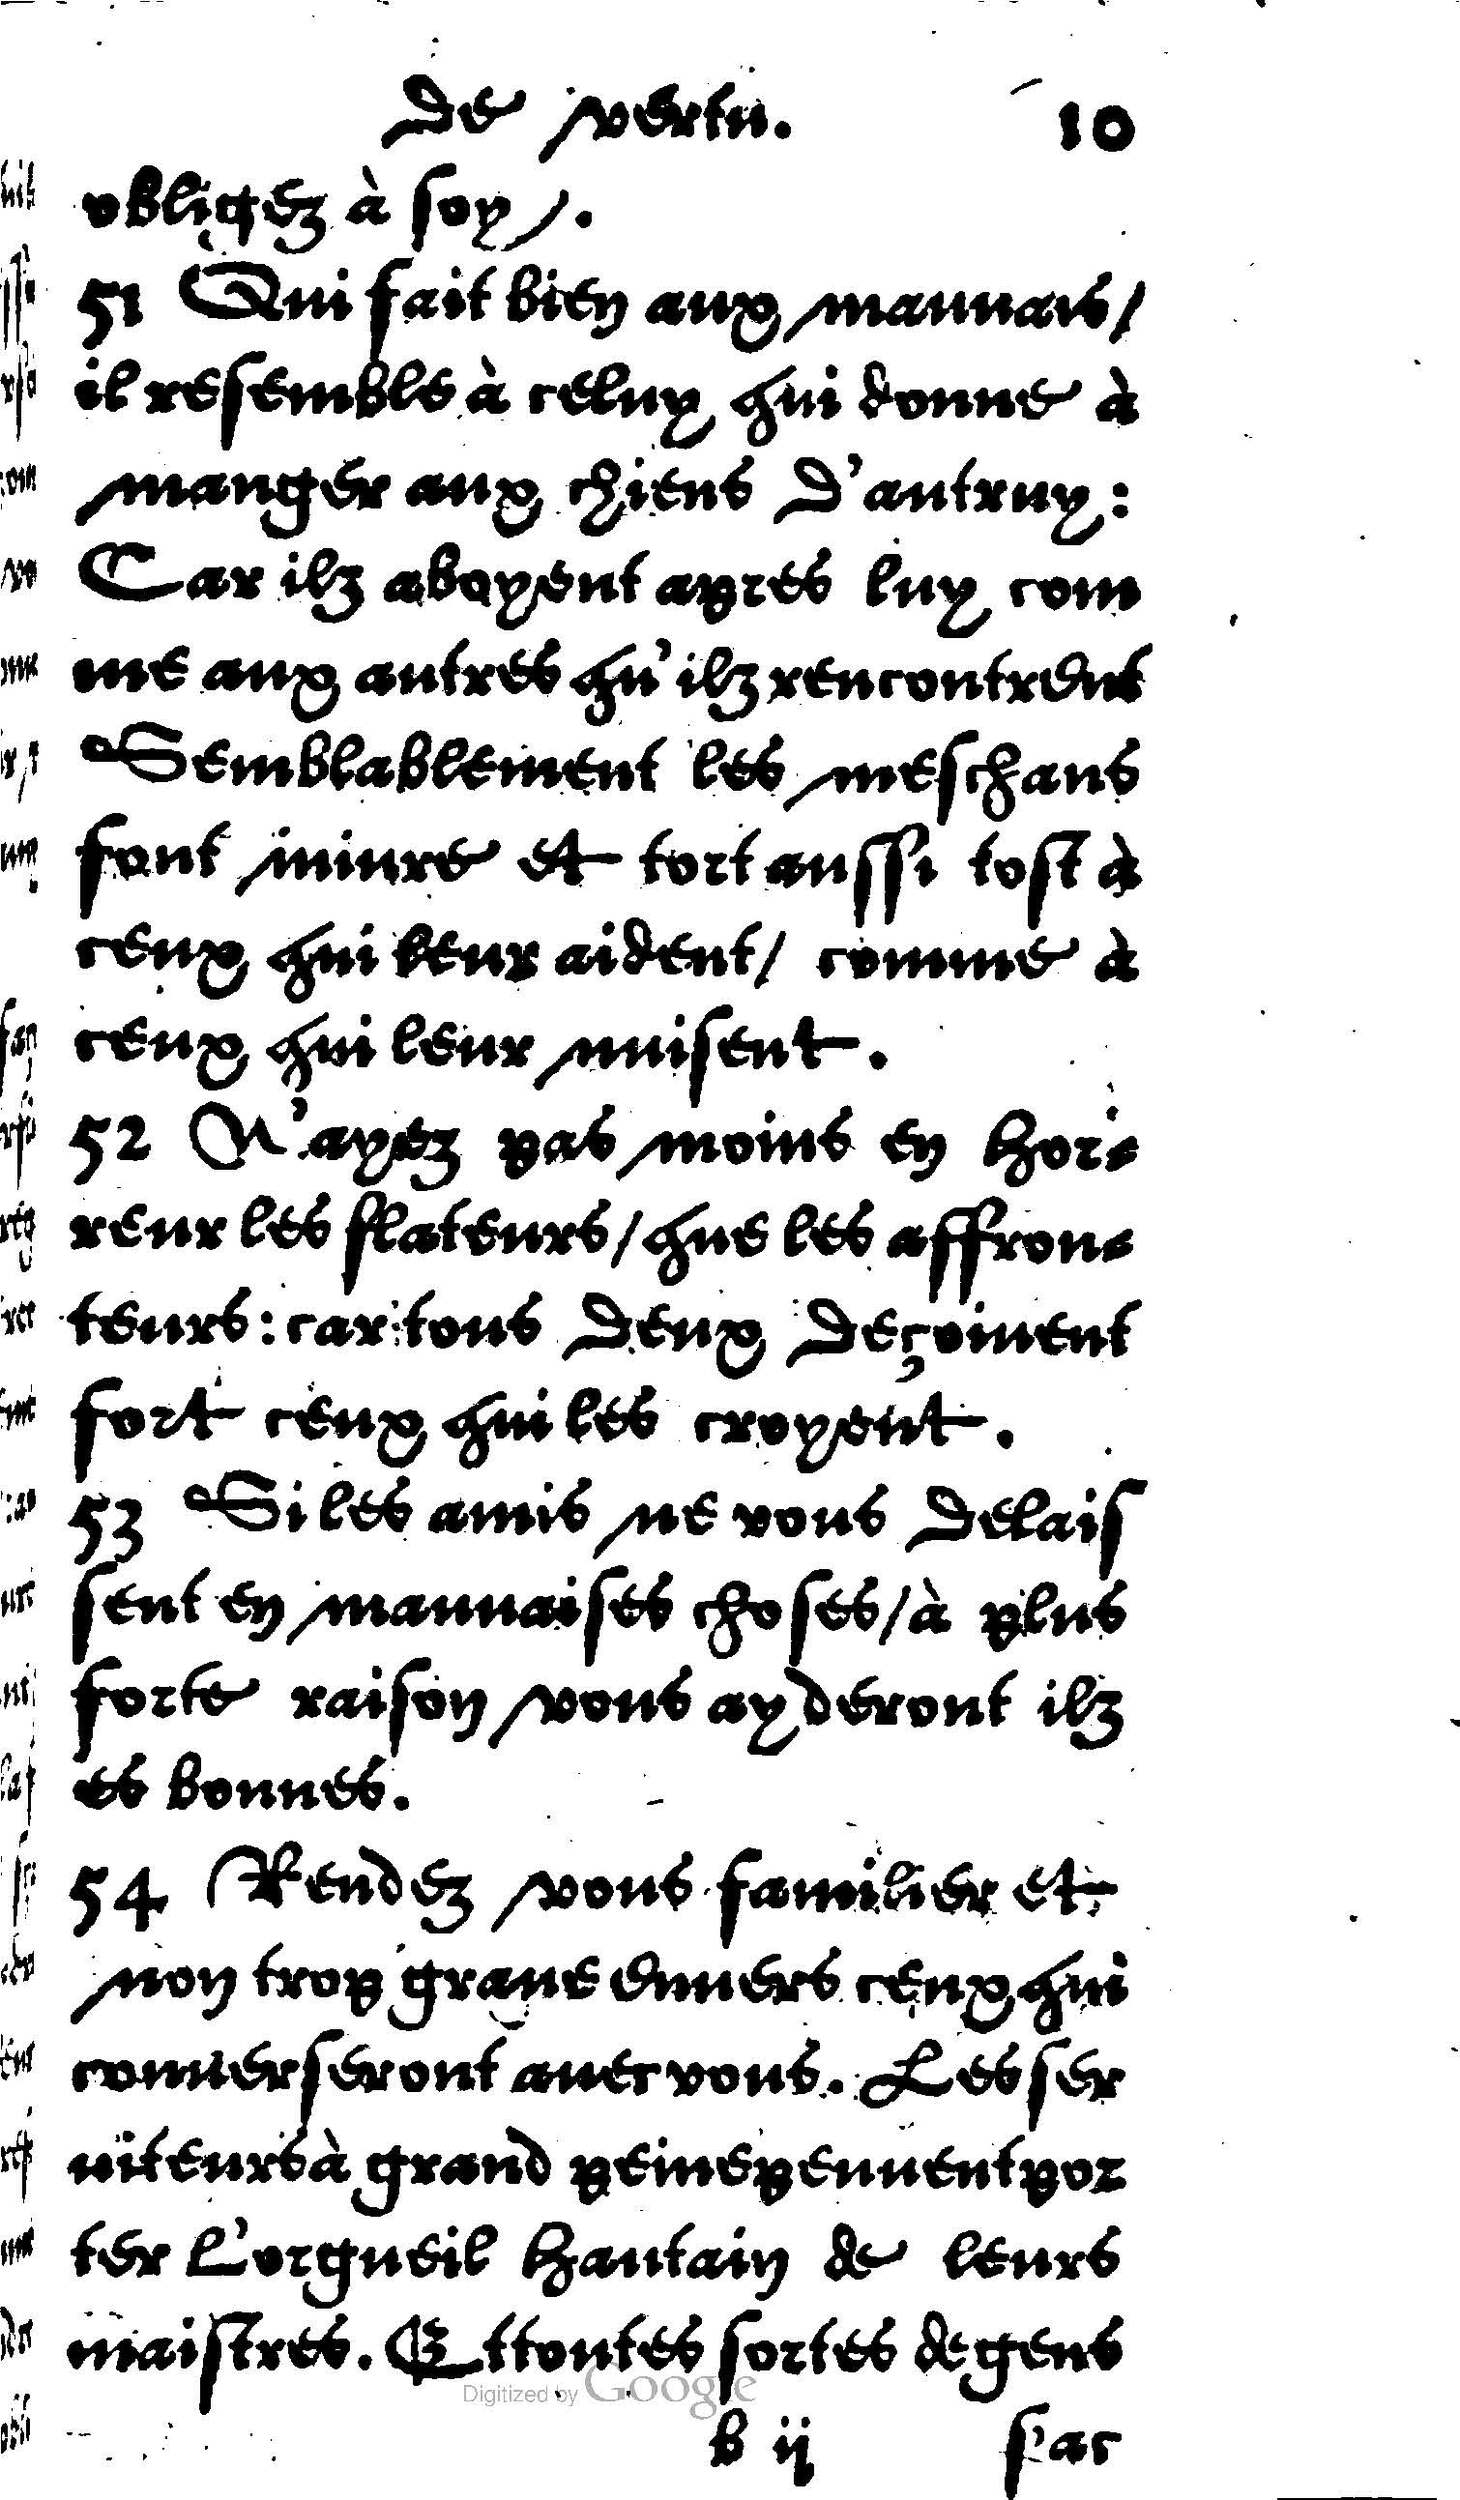 de vertu. 10
obligez à soy.
51 Qui fait bien aux mauuais/
il resemble à celuy qui donne à
manger aux chiens d'autruy:
Car ilz aboyent apres luy com
me aux autres qu'ilz rencontrent
Semblablement les meschans
font iniure et tort aussi tost à
ceux qui leur aident/ comme à
ceux qui leur nuisent.
52 N'ayez pas moins en hor-
reur les flateurs/ que les affron-
teurs: car tous deux deçoiuent
fort ceux qui les croyent.
53 Si les amis ne vous delais
sent en mauuaises choses/ à plus
forte raison vous ayderont ilz
es bonnes.
54 Rendez vous familier et
non trop graue enuers ceux qui
conuerseront auec vous. Les ser
uiteurs à grand peine peuuent por
ter l'orgueil hautain de leurs
maistres. Et toutes sortes de gens
b ij s'ac
Digitized by Google